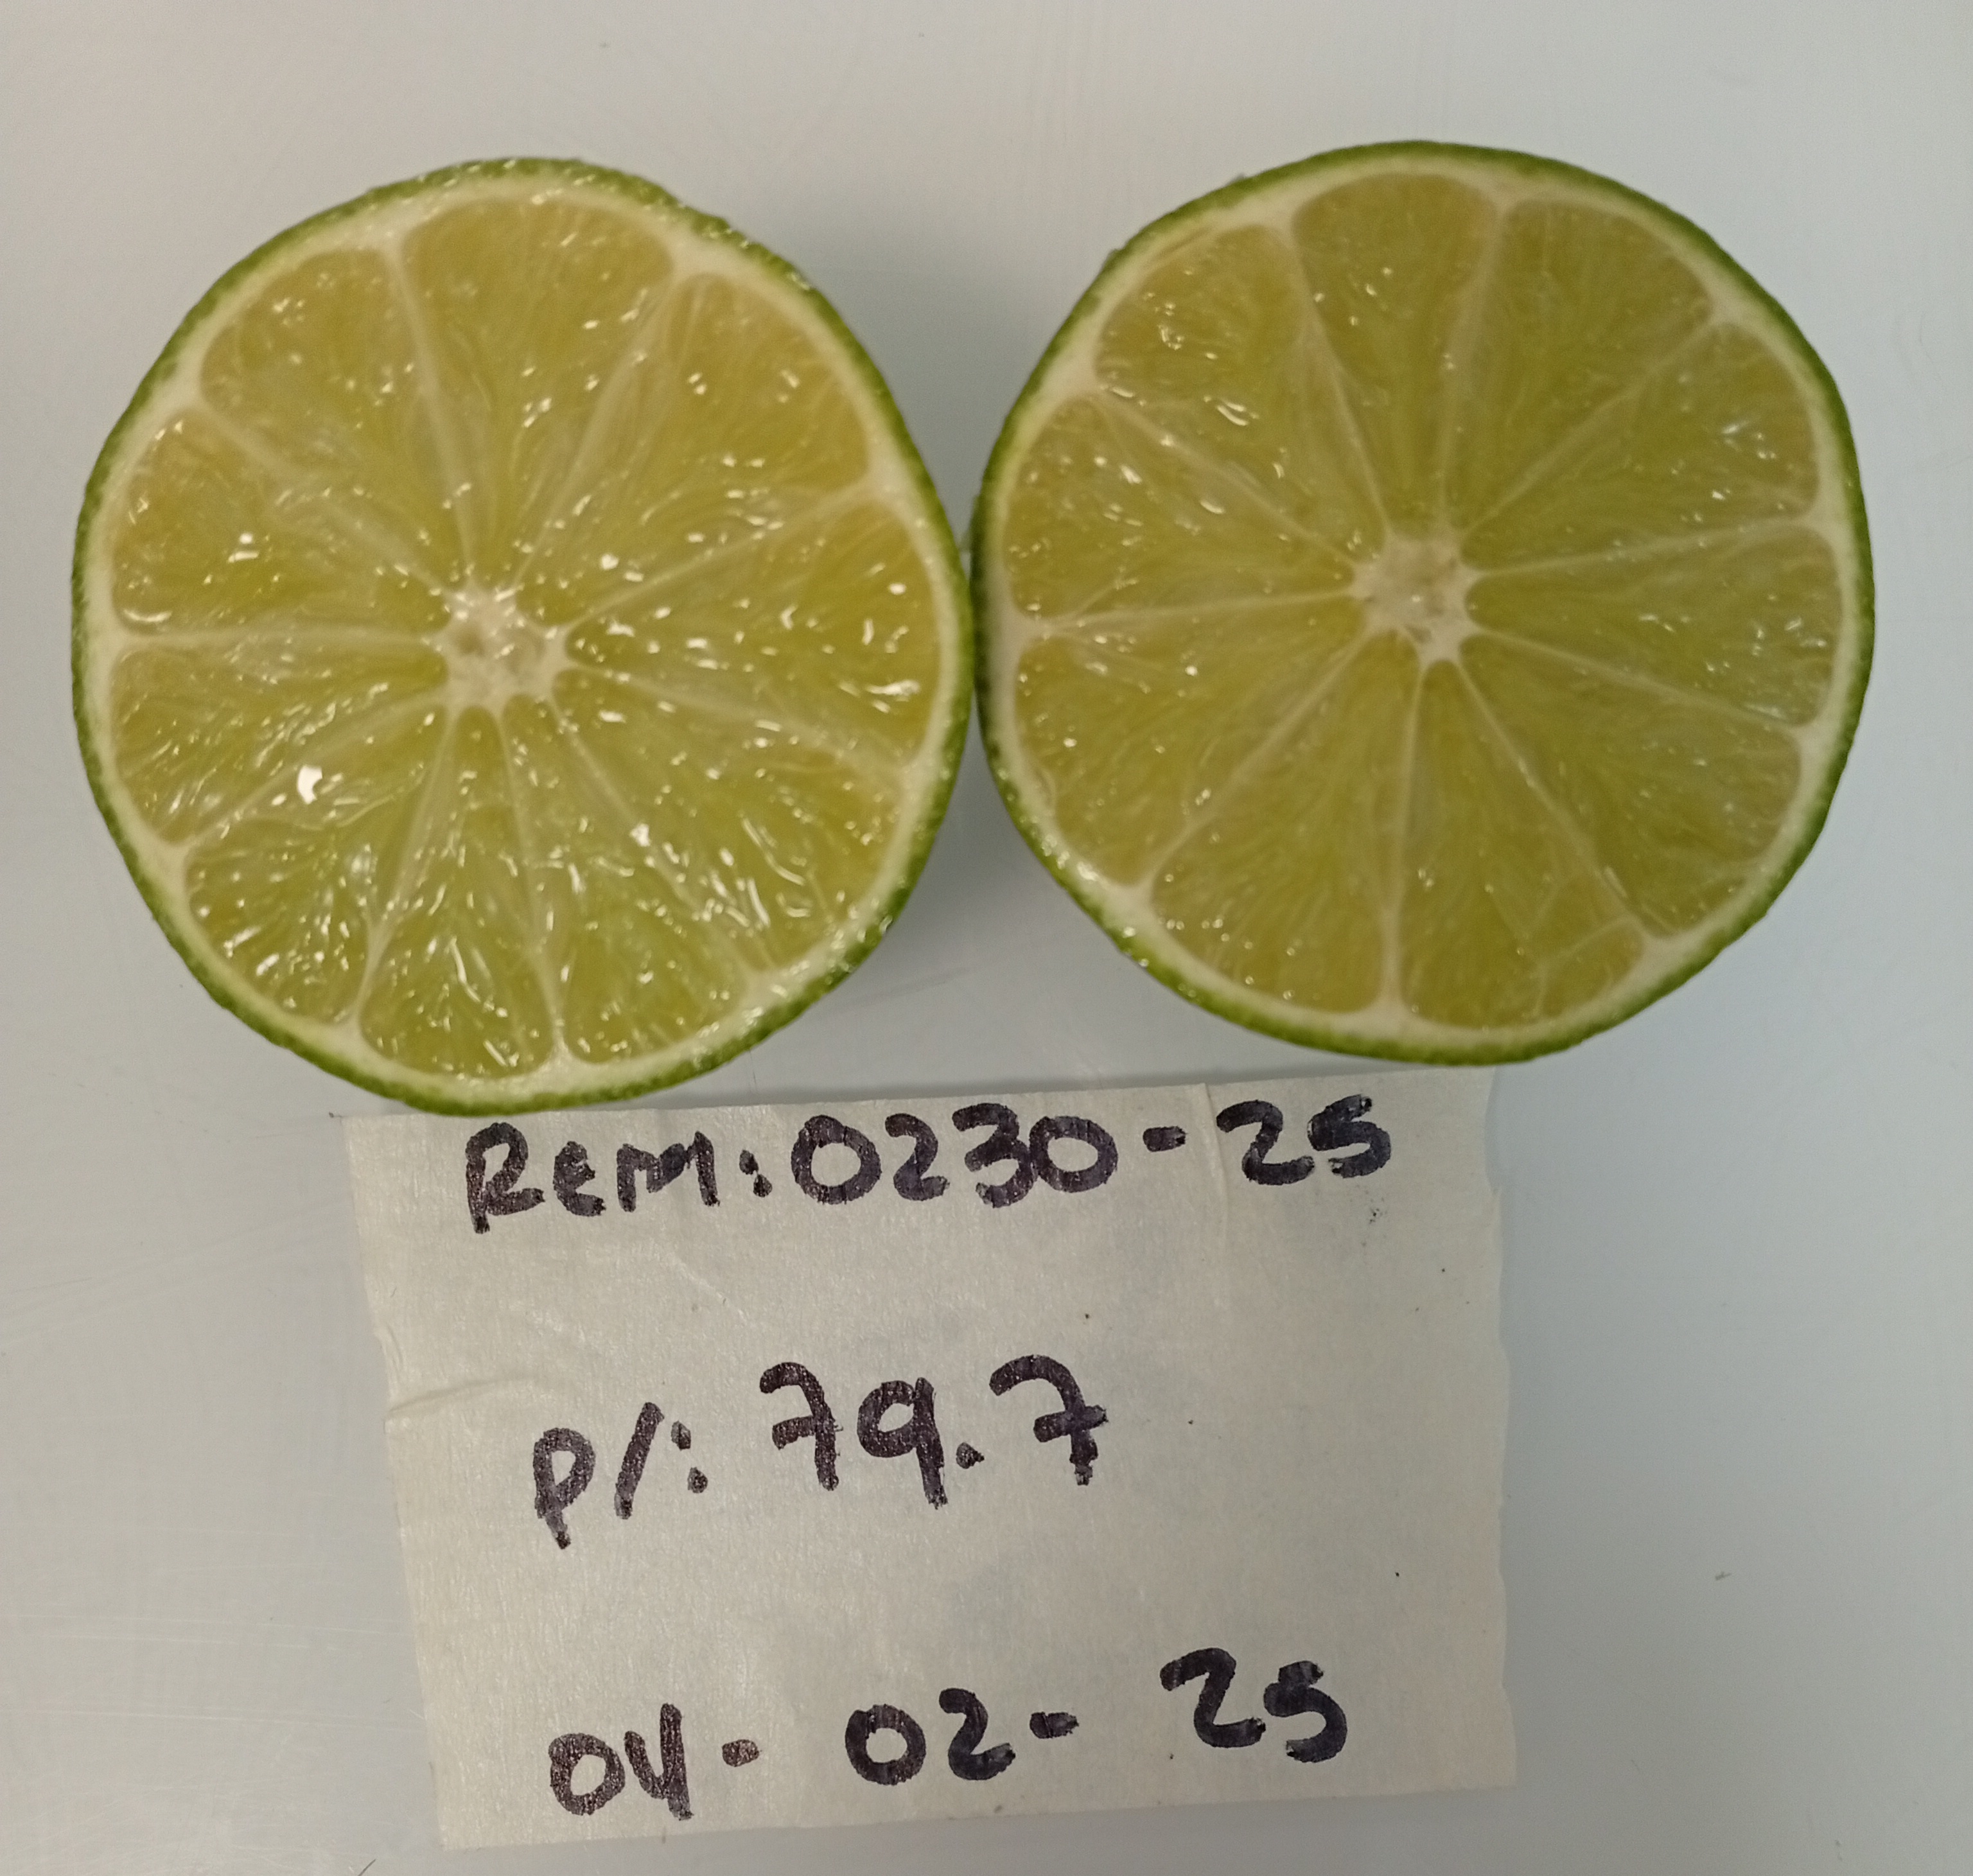 REM: 0230-25
P/: 79.7
04-02-25